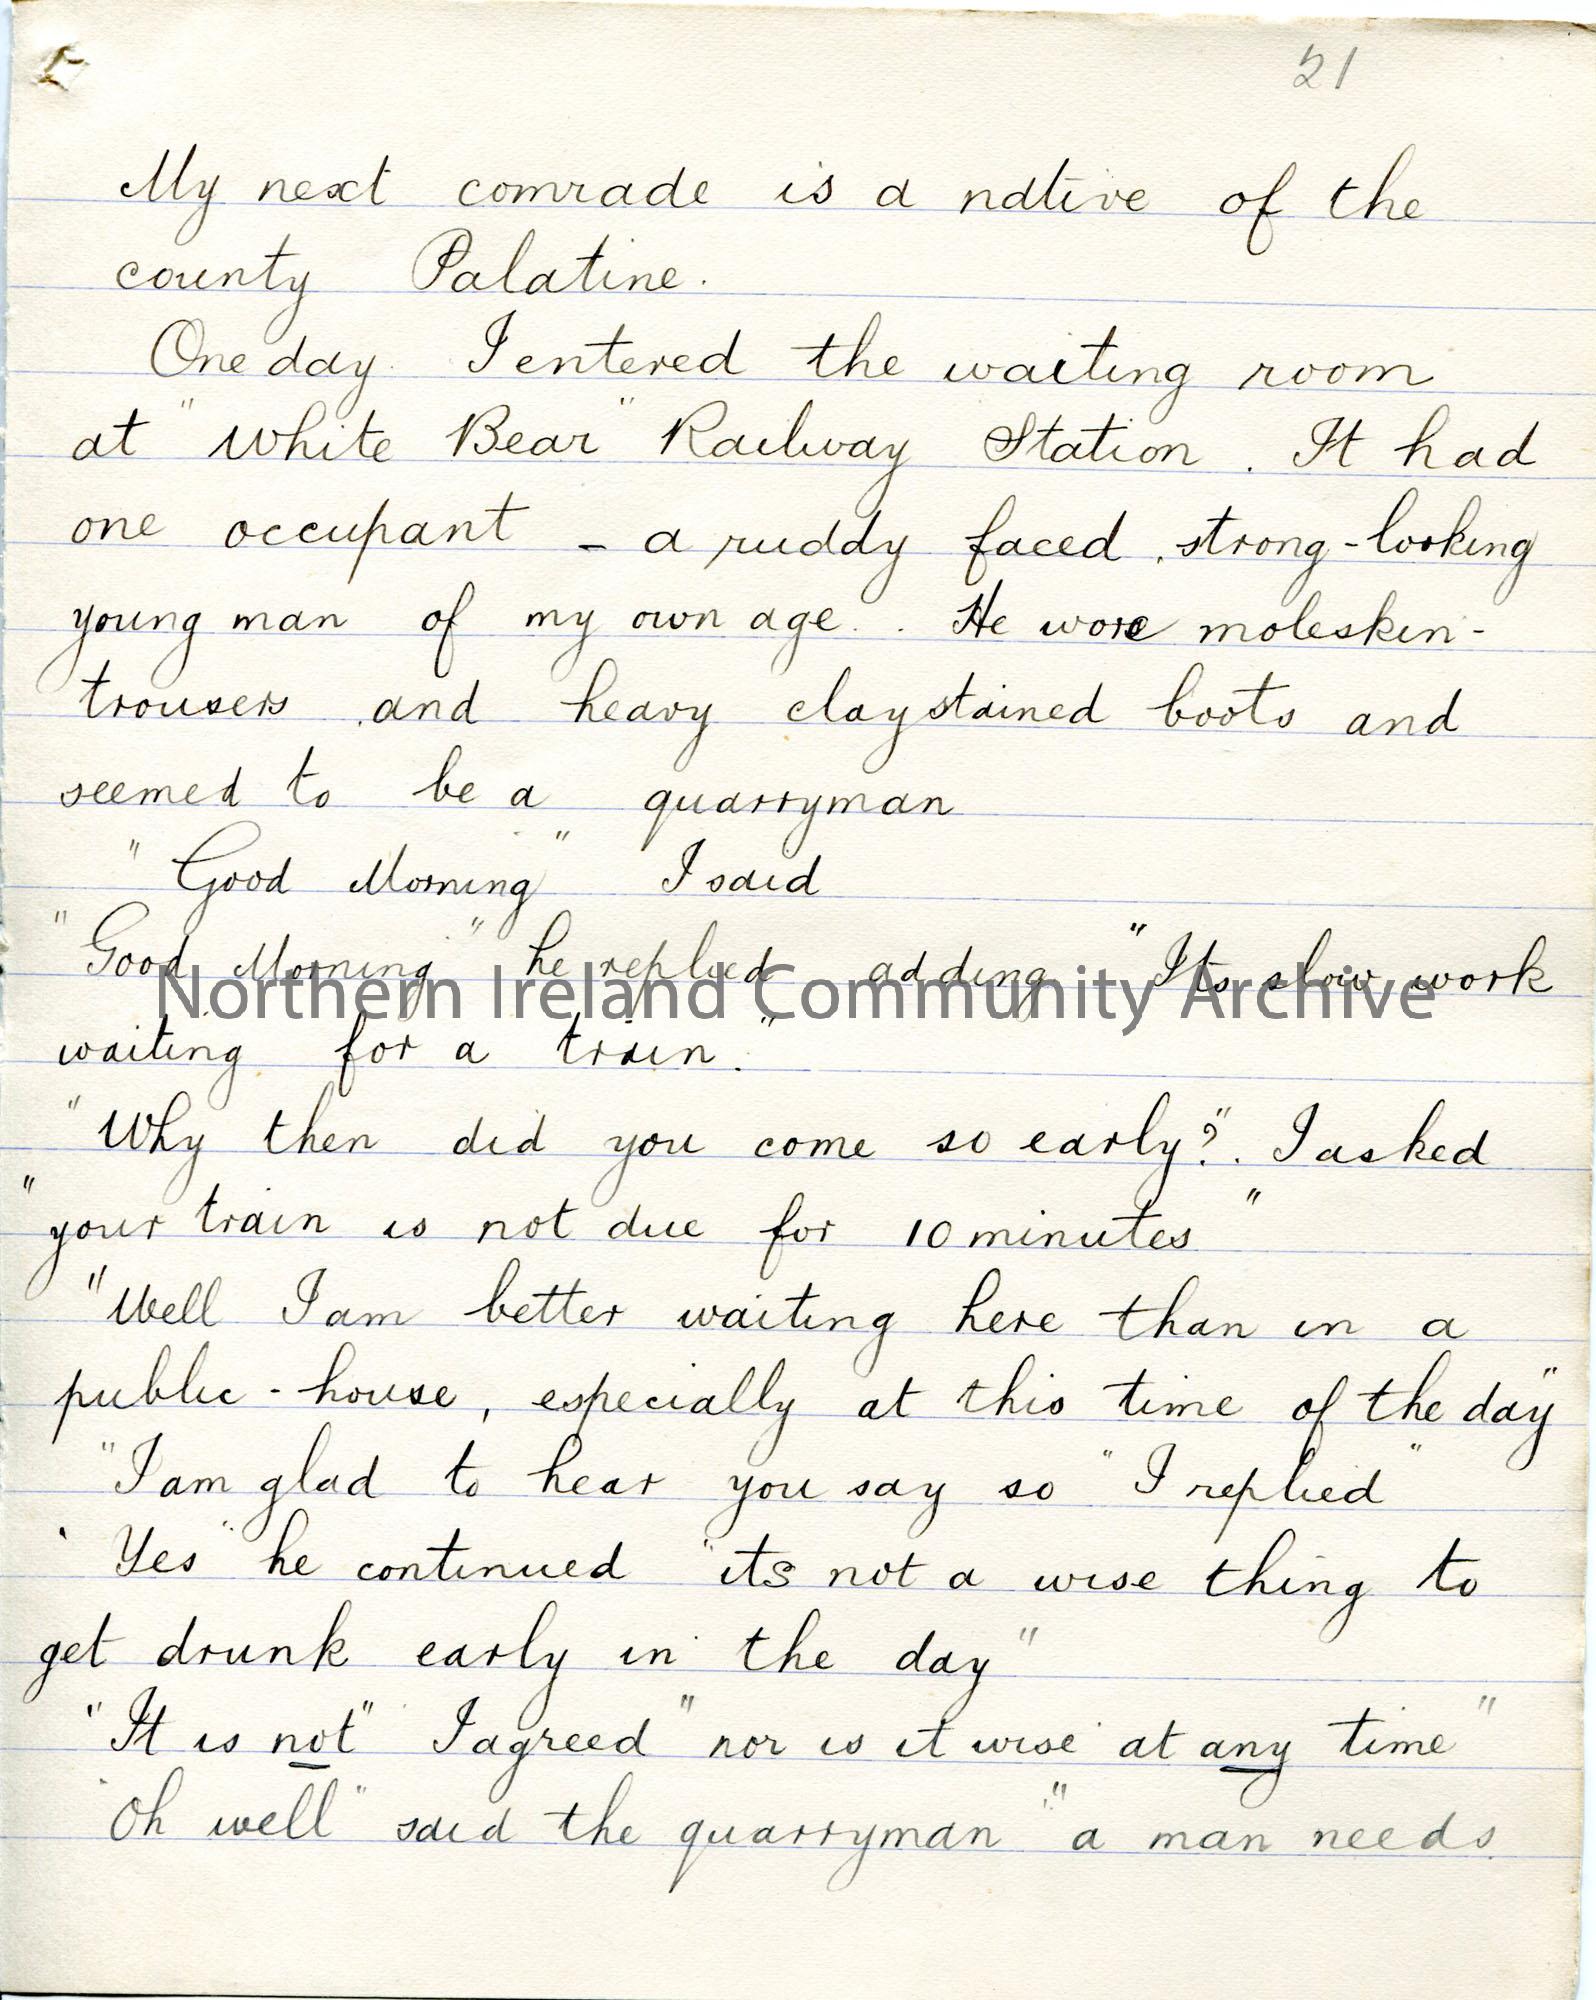 21
My next comrade is a native of the
county Palatine.
One day I entered the waiting room
at "White Bear" Railway Station. It had
one occupant - a ruddy faced, strong-looking
young man of my own age. He wore moleskin-
trousers and heavy clay stained boots and
seemed to be a quarryman
"Good Morning" I said
"Good Morning" he replied adding "Its slow work
Northern Ireland Community Archive
waiting for a train."
"Why then did you come so early?". I asked
"your train is not due for 10 minutes"
"Well I am better waiting here than in a
public-house, especially at this time of the day"
"I am glad to hear you say so "I replied"
"Yes" he continued "its not a wise thing to
get drunk early in the day"
"It is not" I agreed "nor is it wise at any time"
"Oh well" said the quarryman "a man needs